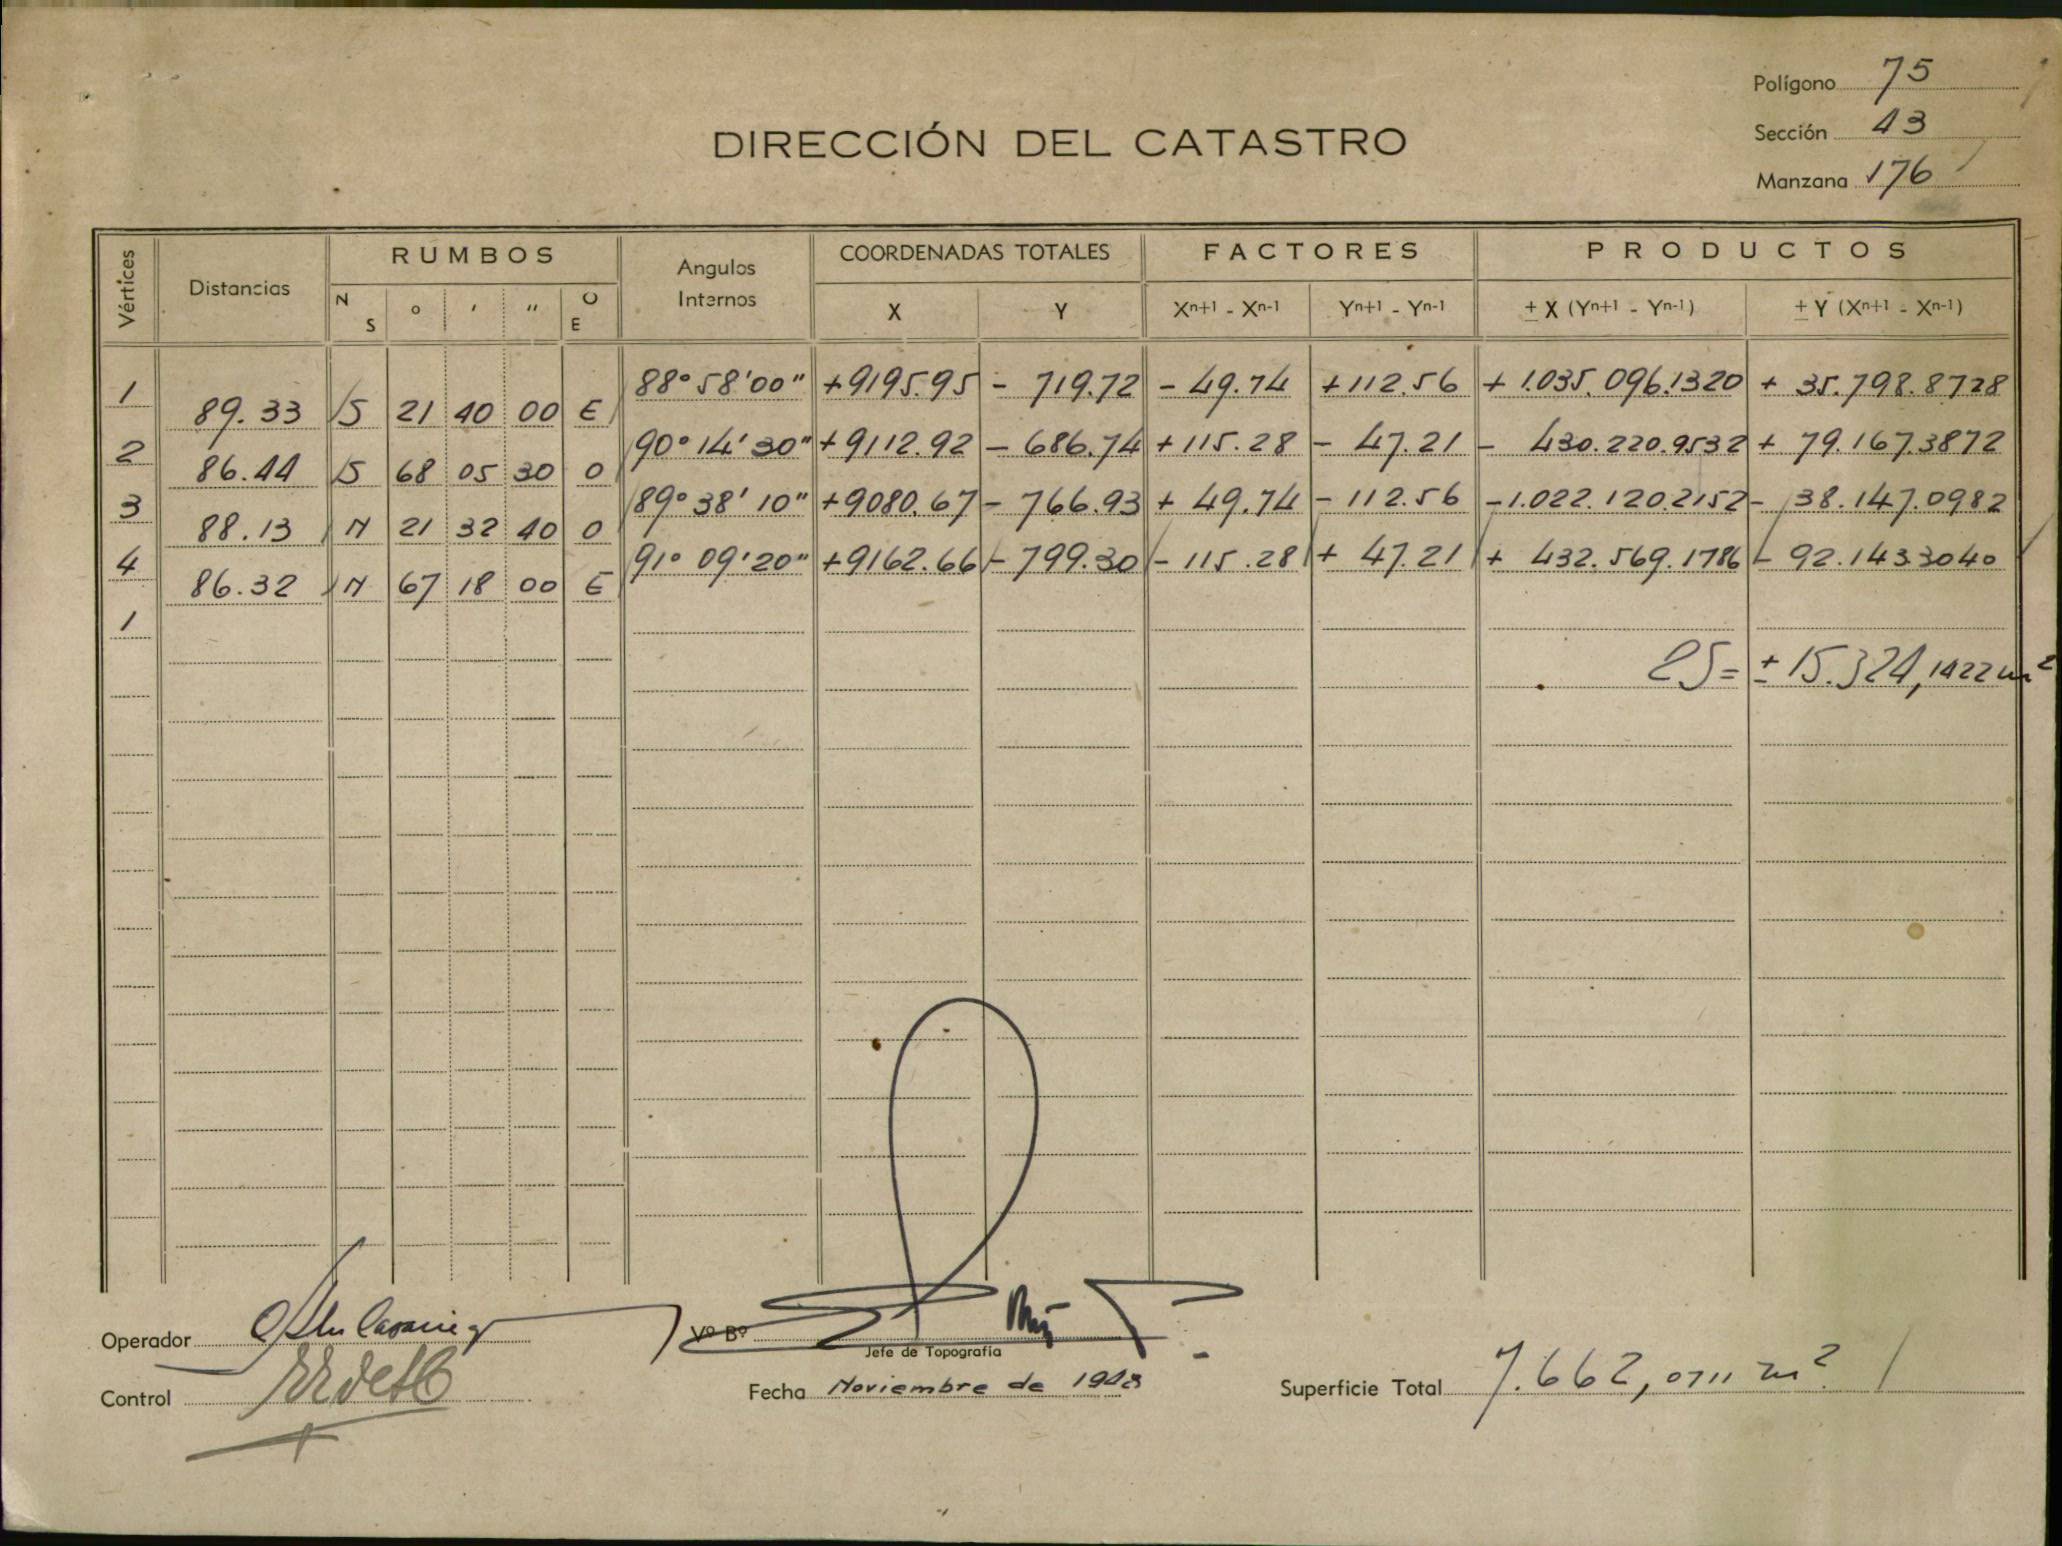 Polígono 75
DIRECCIÓN DEL CATASTRO
Sección 43
Manzana 176
Vértices Distancias RUMBOS Angulos Internos COORDENADAS TOTALES FACTORES PRODUCTOS
N S ° ' " O E X Y Xn+1 - Xn-1 Yn+1 - Yn-1 ± X (Yn+1 - Yn-1) ± Y (Xn+1 - Xn-1)
1 88°58'00" +9195.95 - 719.72 - 49.74 +112.56 + 1.035.096.1320 + 35.798.8728
89.33 S 21 40 00 E
2 90°14'30" +9112.92 - 686.74 +115.28 - 47.21 - 430.220.9532 + 79.167.3872
86.44 S 68 05 30 O
3 89°38'10" +9080.67 - 766.93 + 49.74 -112.56 -1.022.120.2152 - 38.147.0982
88.13 N 21 32 40 O
4 91°09'20" +9162.66 - 799.30 - 115.28 + 47.21 + 432.569.1786 - 92.143.3040
86.32 N 67 18 00 E
1
2S= ± 15.324,1422 m²
Operador
Vº Bº
Jefe de Topografía
Control
Fecha Noviembre de
Superficie Total 7.662,0711 m²